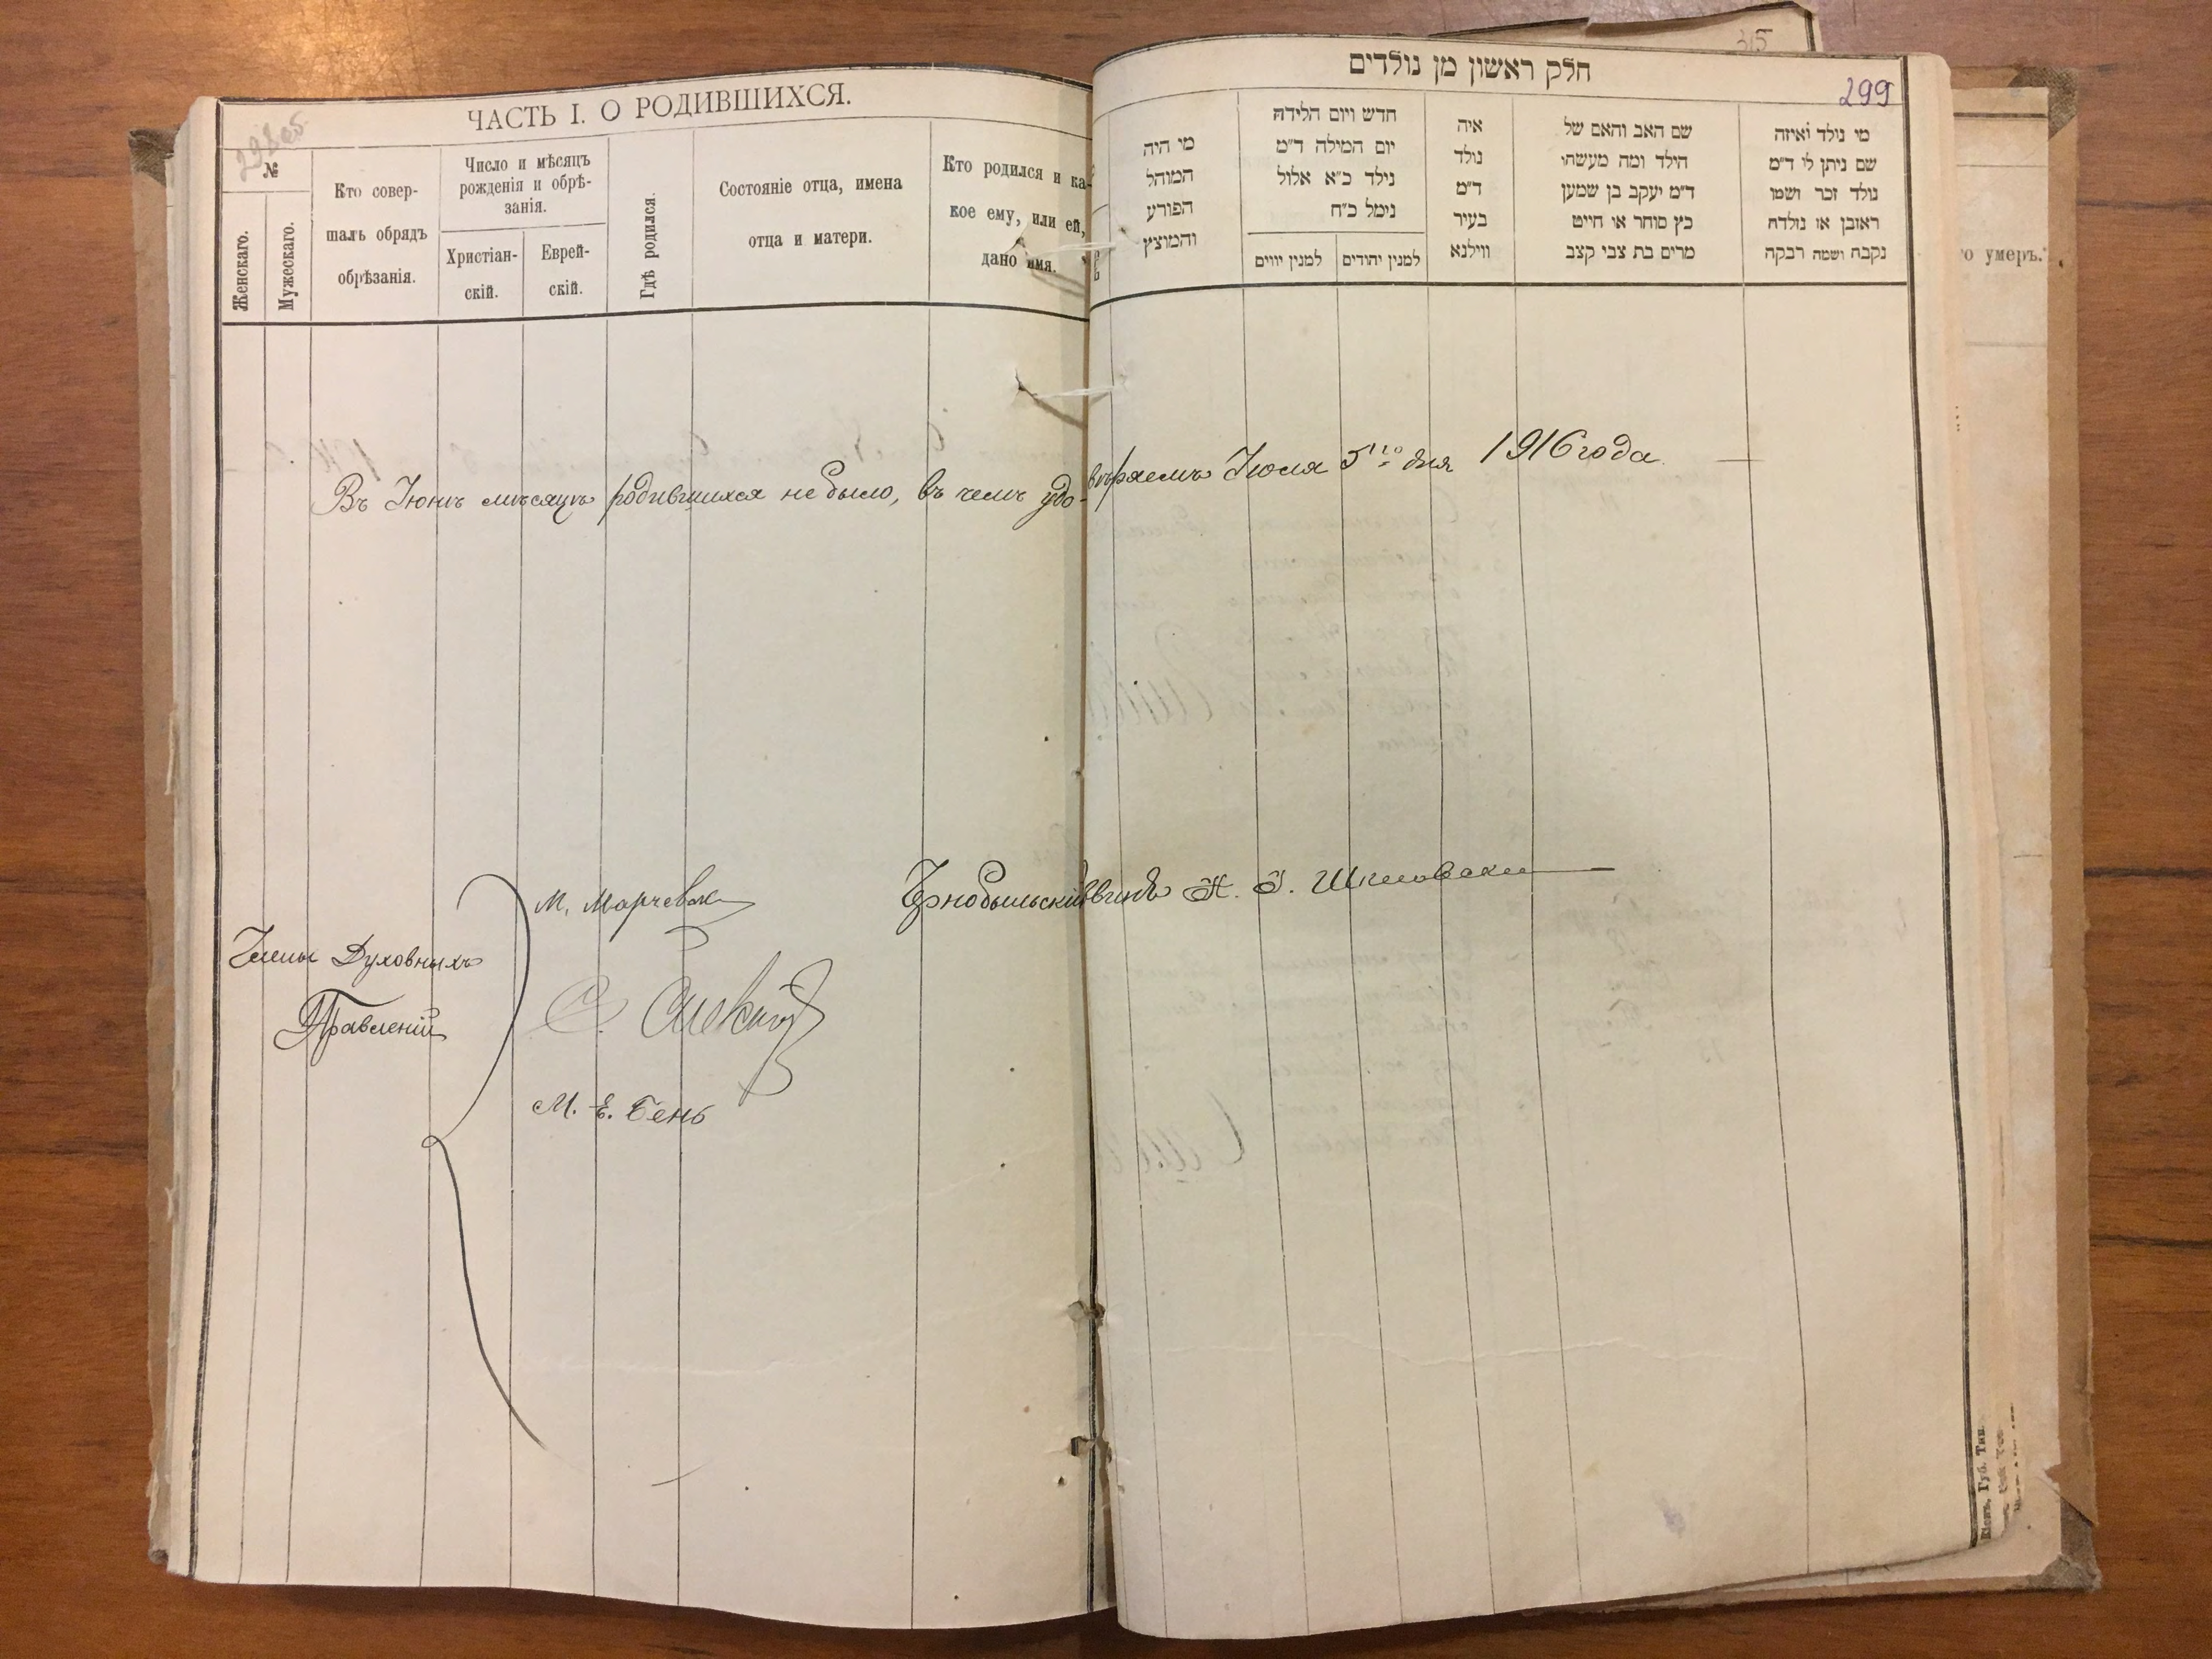 ЧАСТЬ I. О РОДИВШИХСЯ.
№
Женскаго.
Мужескаго.
Кто совер-
шалъ обрядъ
обрѣзанія.
Число и мѣсяцъ
рожденія и обрѣ-
занія.
Христіан-
скій.
Еврей-
скій.
Гдѣ родился.
Состояніе отца, имена
отца и матери.
Кто родился и ка-
кое ему, или ей,
дано имя.
315
חלק ראשון מן נולדים
299
מי נולד ואיזה
שם ניתן לי ד"מ
נולד זכר ושמו
ראובן או נולדה
נקבה ושמה רבקה
שם האב והאם של
הילד ומה מעשהו
ד"מ יעקב בן שמען
כץ סוחר או חייט
מרים בת צבי קצב
איה
נולד
ד"מ
בעיר
ווילנא
חדש ויום הלידה
יום המילה ד"מ
נילד כ"א אלול
נימל כ"ח
למנין יהודים
למנין יווים
מי היה
המוהל
הפורע
והמוצץ
о умеръ.
Въ Іюнѣ мѣсяцѣ родившихся не было, въ чемъ удо-вѣряемъ Іюля 5го дня 1916 года
Чернобыльскій
Члены Духовныхъ
Правленій
М. Е. Бень
Кіевъ, Губ. Тип.